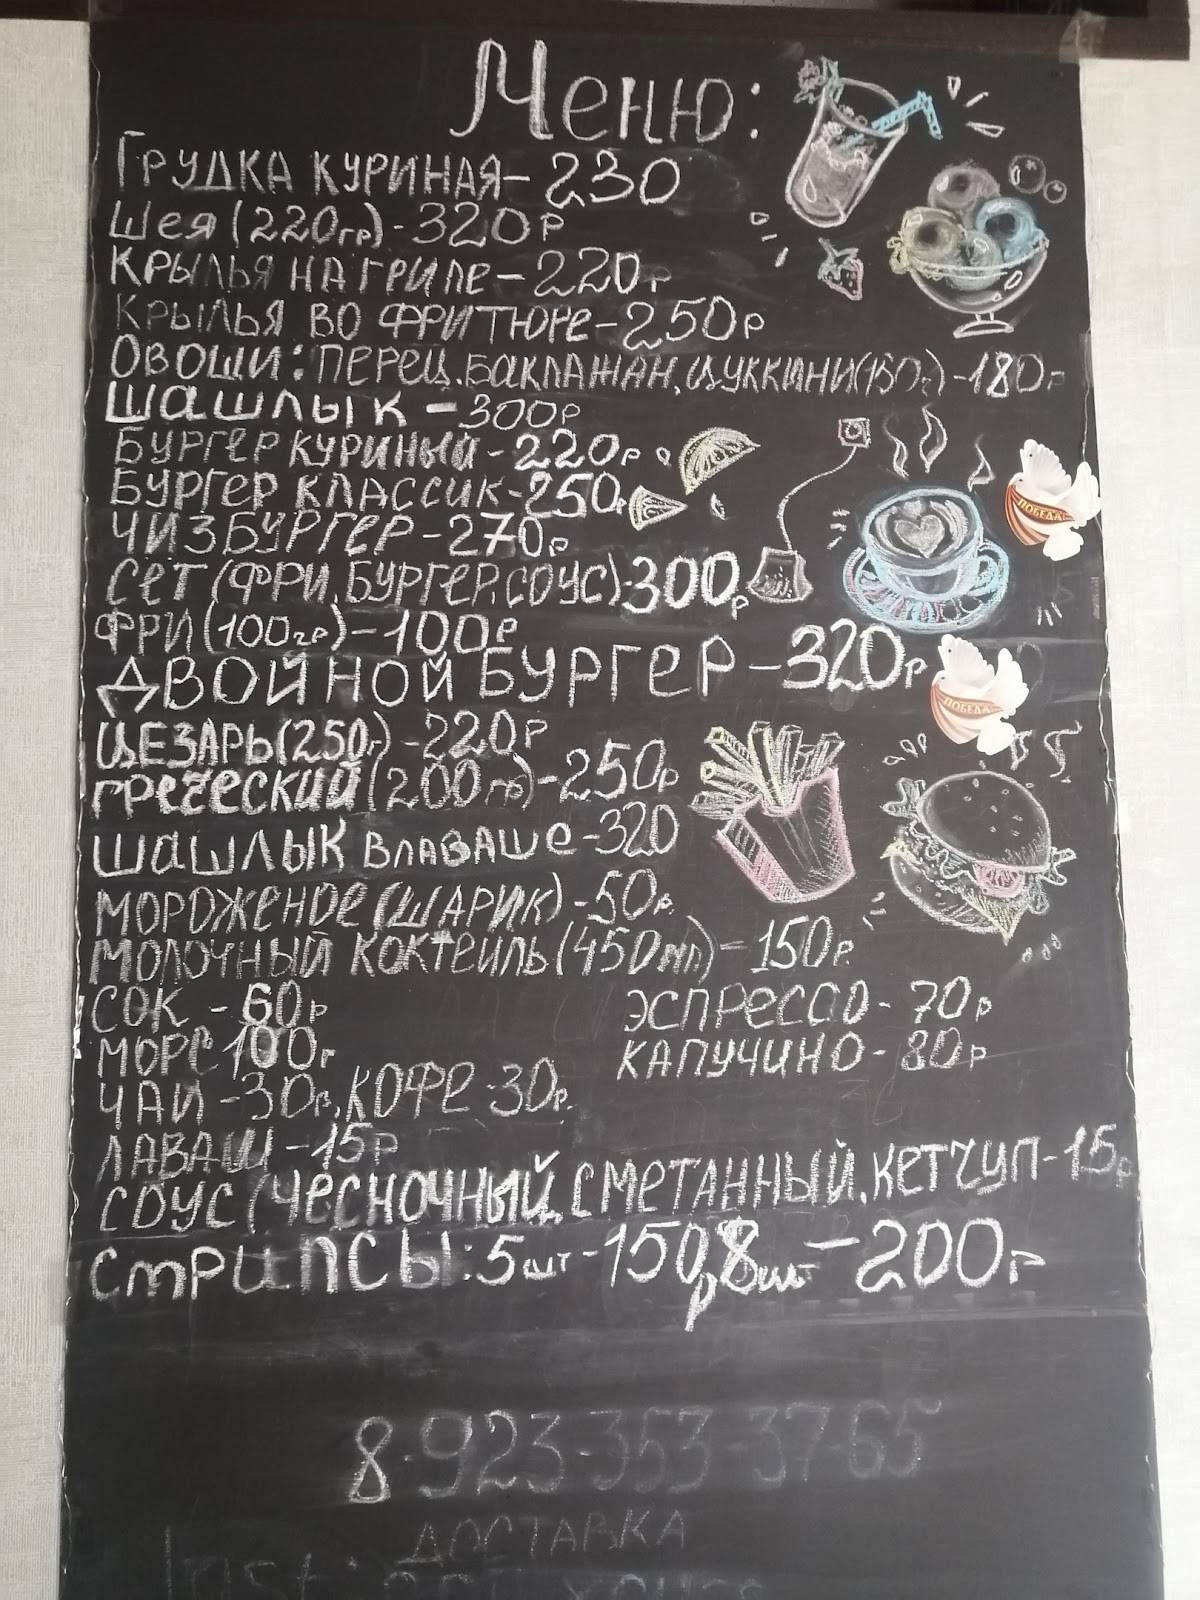 Меню:
Грудка куриная - 230
Шея (220гр) - 320р
Крылья на гриле - 220р
Крылья во фритюре - 250р
Овоши: перец, баклажан, цуккини (150г) - 180р
шашлык - 300р
Бургер куриный - 220р
Бургер классик - 250р
Чизбургер - 270р
Сет (фри, бургер, соус) - 300р
Фри (100гр) - 100р
Двойной бургер - 320р
ПОБЕДА!
ПОБЕДА!
Цезарь (250г) - 220р
Греческий (200гр) - 250р
Шашлык в лаваше - 320
Мороженое (шарик) - 50р.
Молочный коктеиль (450мл) - 150р.
Сок - 60р Эспрессо - 70р
Морс 100р Капучино - 80р
Чаи - 30р, Кофе - 30р.
Лаваш - 15р
Соус (чесночный, сметанный, кетчуп - 15р
Стрипсы: 5шт - 150р, 8шт - 200р
8-923-353-37-65
ДОСТАВКА